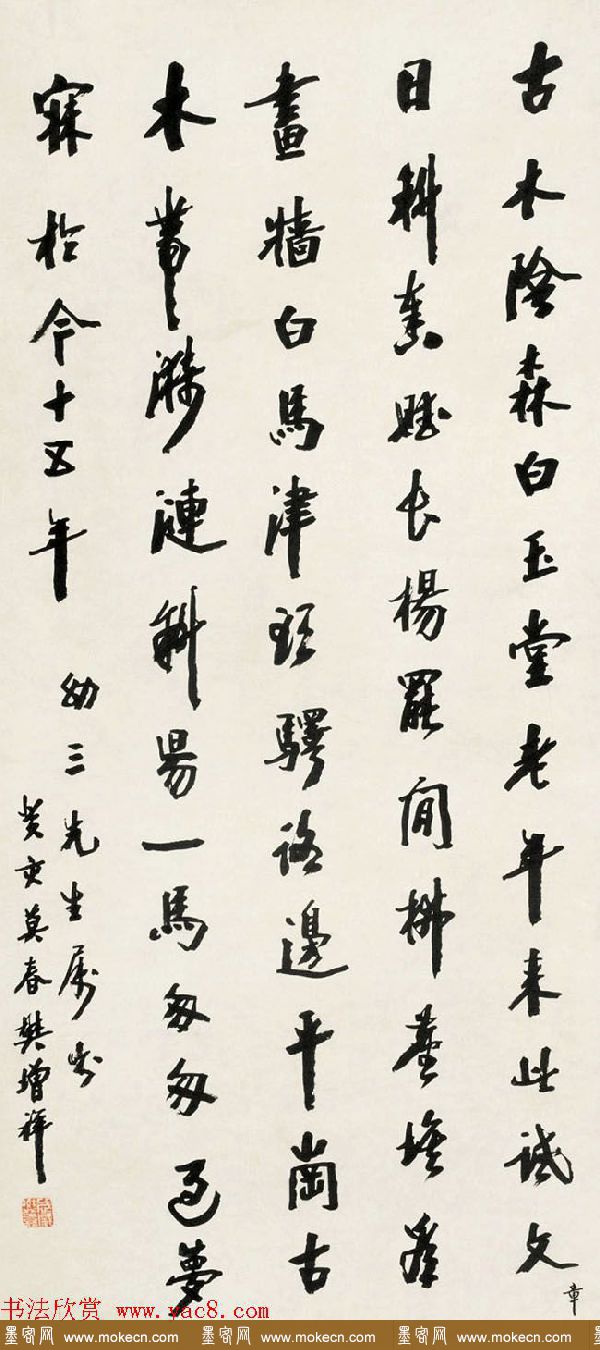 古木陰森白玉堂老年來此試文
章
日斜奏賦長楊罷閒拂塵埃看
畫牆白馬津頭驛路邊平崗古
木帶漪漣斜昜一馬匆匆過夢
寐於今十五年
幼三先生屬書
癸亥莫春樊增祥
书法欣赏 www.yac8.com
墨客网 www.mokecn.com 墨客网 www.mokecn.com 墨客网 www.mokecn.com